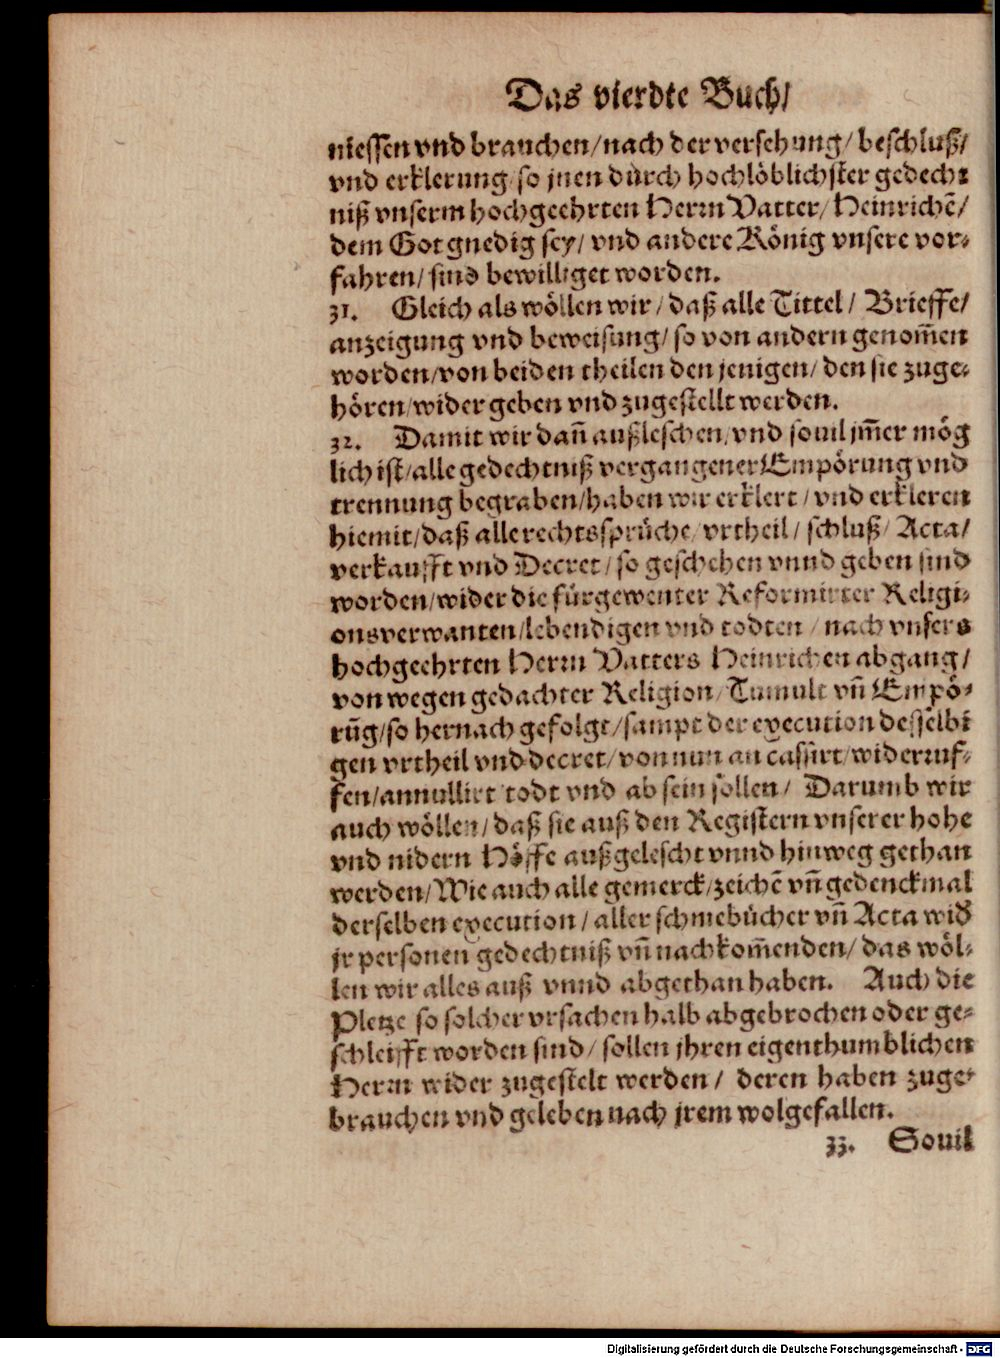 Das vierdte Buch/
niessen vnd brauchen/nach der versehung/beschluß/
vnd erklerung so jnen durch hochlöblichster gedech⸗
niß vnserm hochgeehrten Herrn Vatter/Heinrichē/
dem Got gnedig sey/ vnd andere König vnsere vor⸗
fahren/ sind bewilliget worden.
31. Gleich als wöllen wir/ daß alle Tittel/ Brieffe/
anzeigung vnd beweisung/ so von andern genom̄en
worden/von beiden theilen den jenigen/ den sie zuge⸗
hören/wider geben vnd zugestellt werden.
32. Damit wir dañ außleschen/vnd souil jm̄er mög
lich ist/alle gedechtniß vergangener Empörung vnd
trennung begraben/haben wir erklert/ vnd erkleren
hiemit/daß alle rechtssprüche/vrtheil/ schluß/ Acta/
verkaufft vnd Decret/ so geschehen vnnd geben sind
worden/wider die fürgewenter Reformirter Religi⸗
onsverwanten/lebendigen vnd todten / nach vnsers
hochgeehrten Herrn Vatters Heinrichen abgang/
von wegen gedachter Religion/Tumult vñ Empö⸗
rūg/so hernach gefolgt/sampt der execution desselbi
gen vrtheil vnd decret/ von nun an cassirt/widerruf⸗
fen/annullirt todt vnd ab sein sollen/ Darumb wir
auch wöllen/daß sie auß den Registern vnserer hohe
vnd nidern Höffe außgelescht vnnd hinweg gethan
werden/Wie auch alle gemerck/zeichē vñ gedenckmal
derselben execution/ aller schmebücher vñ Acta wid
jr personen gedechtniß vñ nachkom̄enden/ das wöl⸗
len wir alles auß vnnd abgethan haben. Auch die
Pletze so solcher vrsachen halb abgebrochen oder ge⸗
schleifft worden sind/ sollen jhren eigenthumblichen
Herrn wider zugestelt werden/ deren haben zuge⸗
brauchen vnd geleben nach jrem wolgefallen.
33. Souil
Digitalisierung gefördert durch die Deutsche Forschungsgemeinschaft - DFG